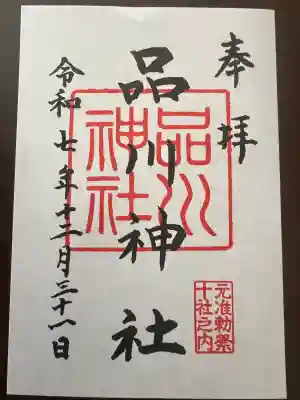 奉拝
品川神社
品川
神社
令和七年十二月三十一日
元准勅祭
十社之内